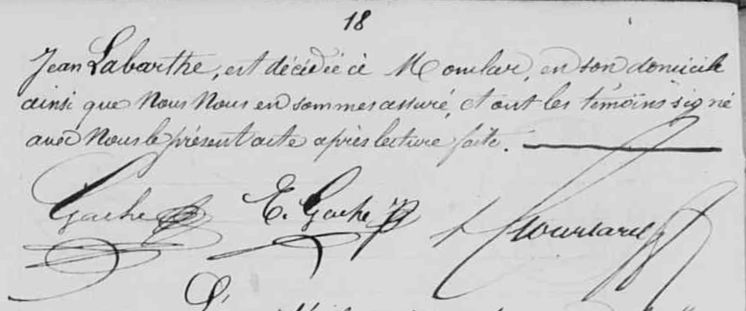 18
Jean Labarthe, est décédée à Monlar, en son domicile
ainsi que Nous Nous en sommes assuré, et ont les témoins signé
avec Nous le présent acte après lecture faite.
Gache E. Gache